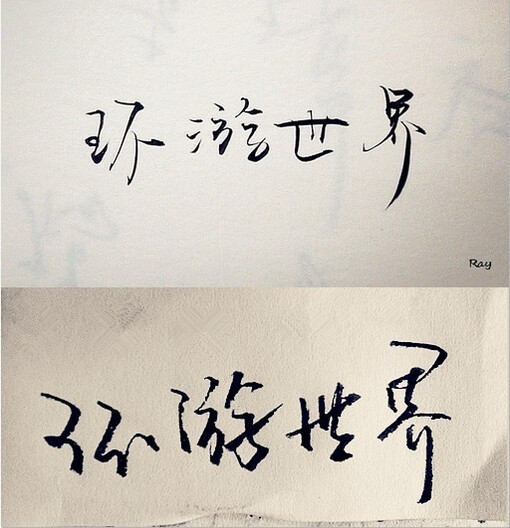 环游世界
Ray
环游世界